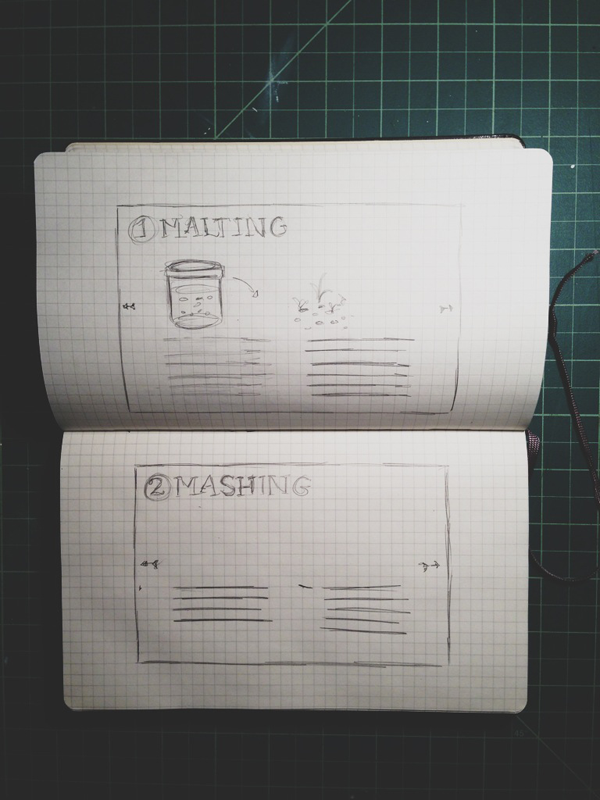 1 MALTING
2 MASHING